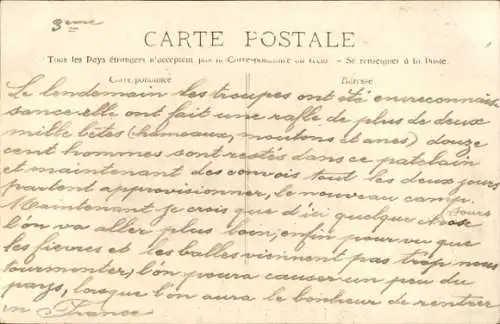 3eme
CARTE POSTALE
Tous les Pays étrangers n'acceptent pas la Correspondance au recto - Se renseigner à la Poste.
Correspondance
Adresse
Le lendemain les troupes ont été en reconnais
sance elle ont fait une rafle de plus de deux
mille bêtes (chameaux, moutons et anes) douze
cent hommes sont restés dans ce patelain
et maintenant des convois tout les deux jours
partent approvisionner, le nouveau camp.
Maintenant je crois que d'ici quelque jours
l'on va aller plus loin; enfin pourvu que
les fievres et les balles viennent pas trop nous
tourminter, l'on poura causer un peu du
pays, lorsque l'on aura le bonheur de rentrer
en France